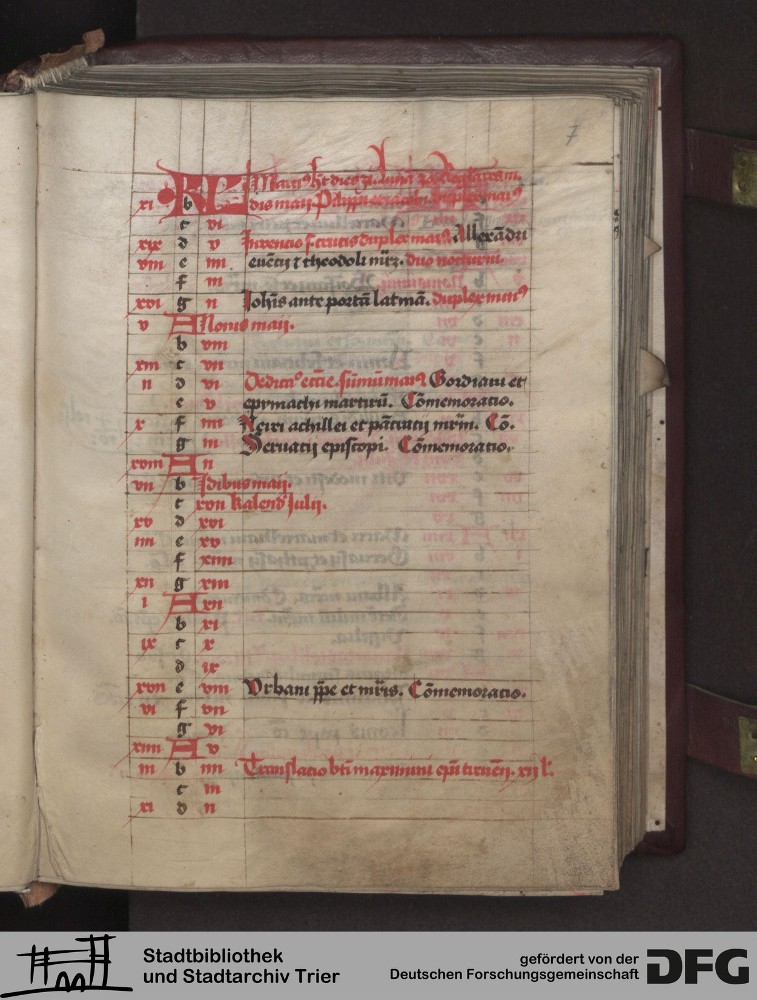 7
KL Maius ht dies xxxi. luna
xi b dis maii. Philippi et iacobi. duplex mai9
c vi
xix d v Invencio s. crucis duplex mai9. Allexãdri
viii e iiii euẽtij et theodoli mr̃z. duo nocturni.
f iii
xvi g ii Joh̃is ante portã latinã. duplex mai9
v A Nonis maii.
b viii
xiii c vii
ii d vi Dedica9 eccl̃ie. sũmũ mai9. Gordiani et
e v epymachi martirũ. Cõmemoratio.
x f iiii Nerei achillei et pãcracij mr̃im. Cõ.
g iii Seruatij episcopi. Cõmemoratio.
xviii A ii
vii b Idibus maii.
c xvii kalend Julij.
xv d xvi
iiii e xv
f xiiii
xii g xiii
i A xii
b xi
ix c x
d ix
xvii e viii Vrbani p̃pe et mr̃is. Cõmemoratio.
vi f vii
g vi
xiiii A v
iii b iiii Translatio bt̃i maximini ep̃i treueñ. xij l̃.
c iii
xi d ii
Stadtbibliothek
und Stadtarchiv Trier
gefördert von der
Deutschen Forschungsgemeinschaft
DFG